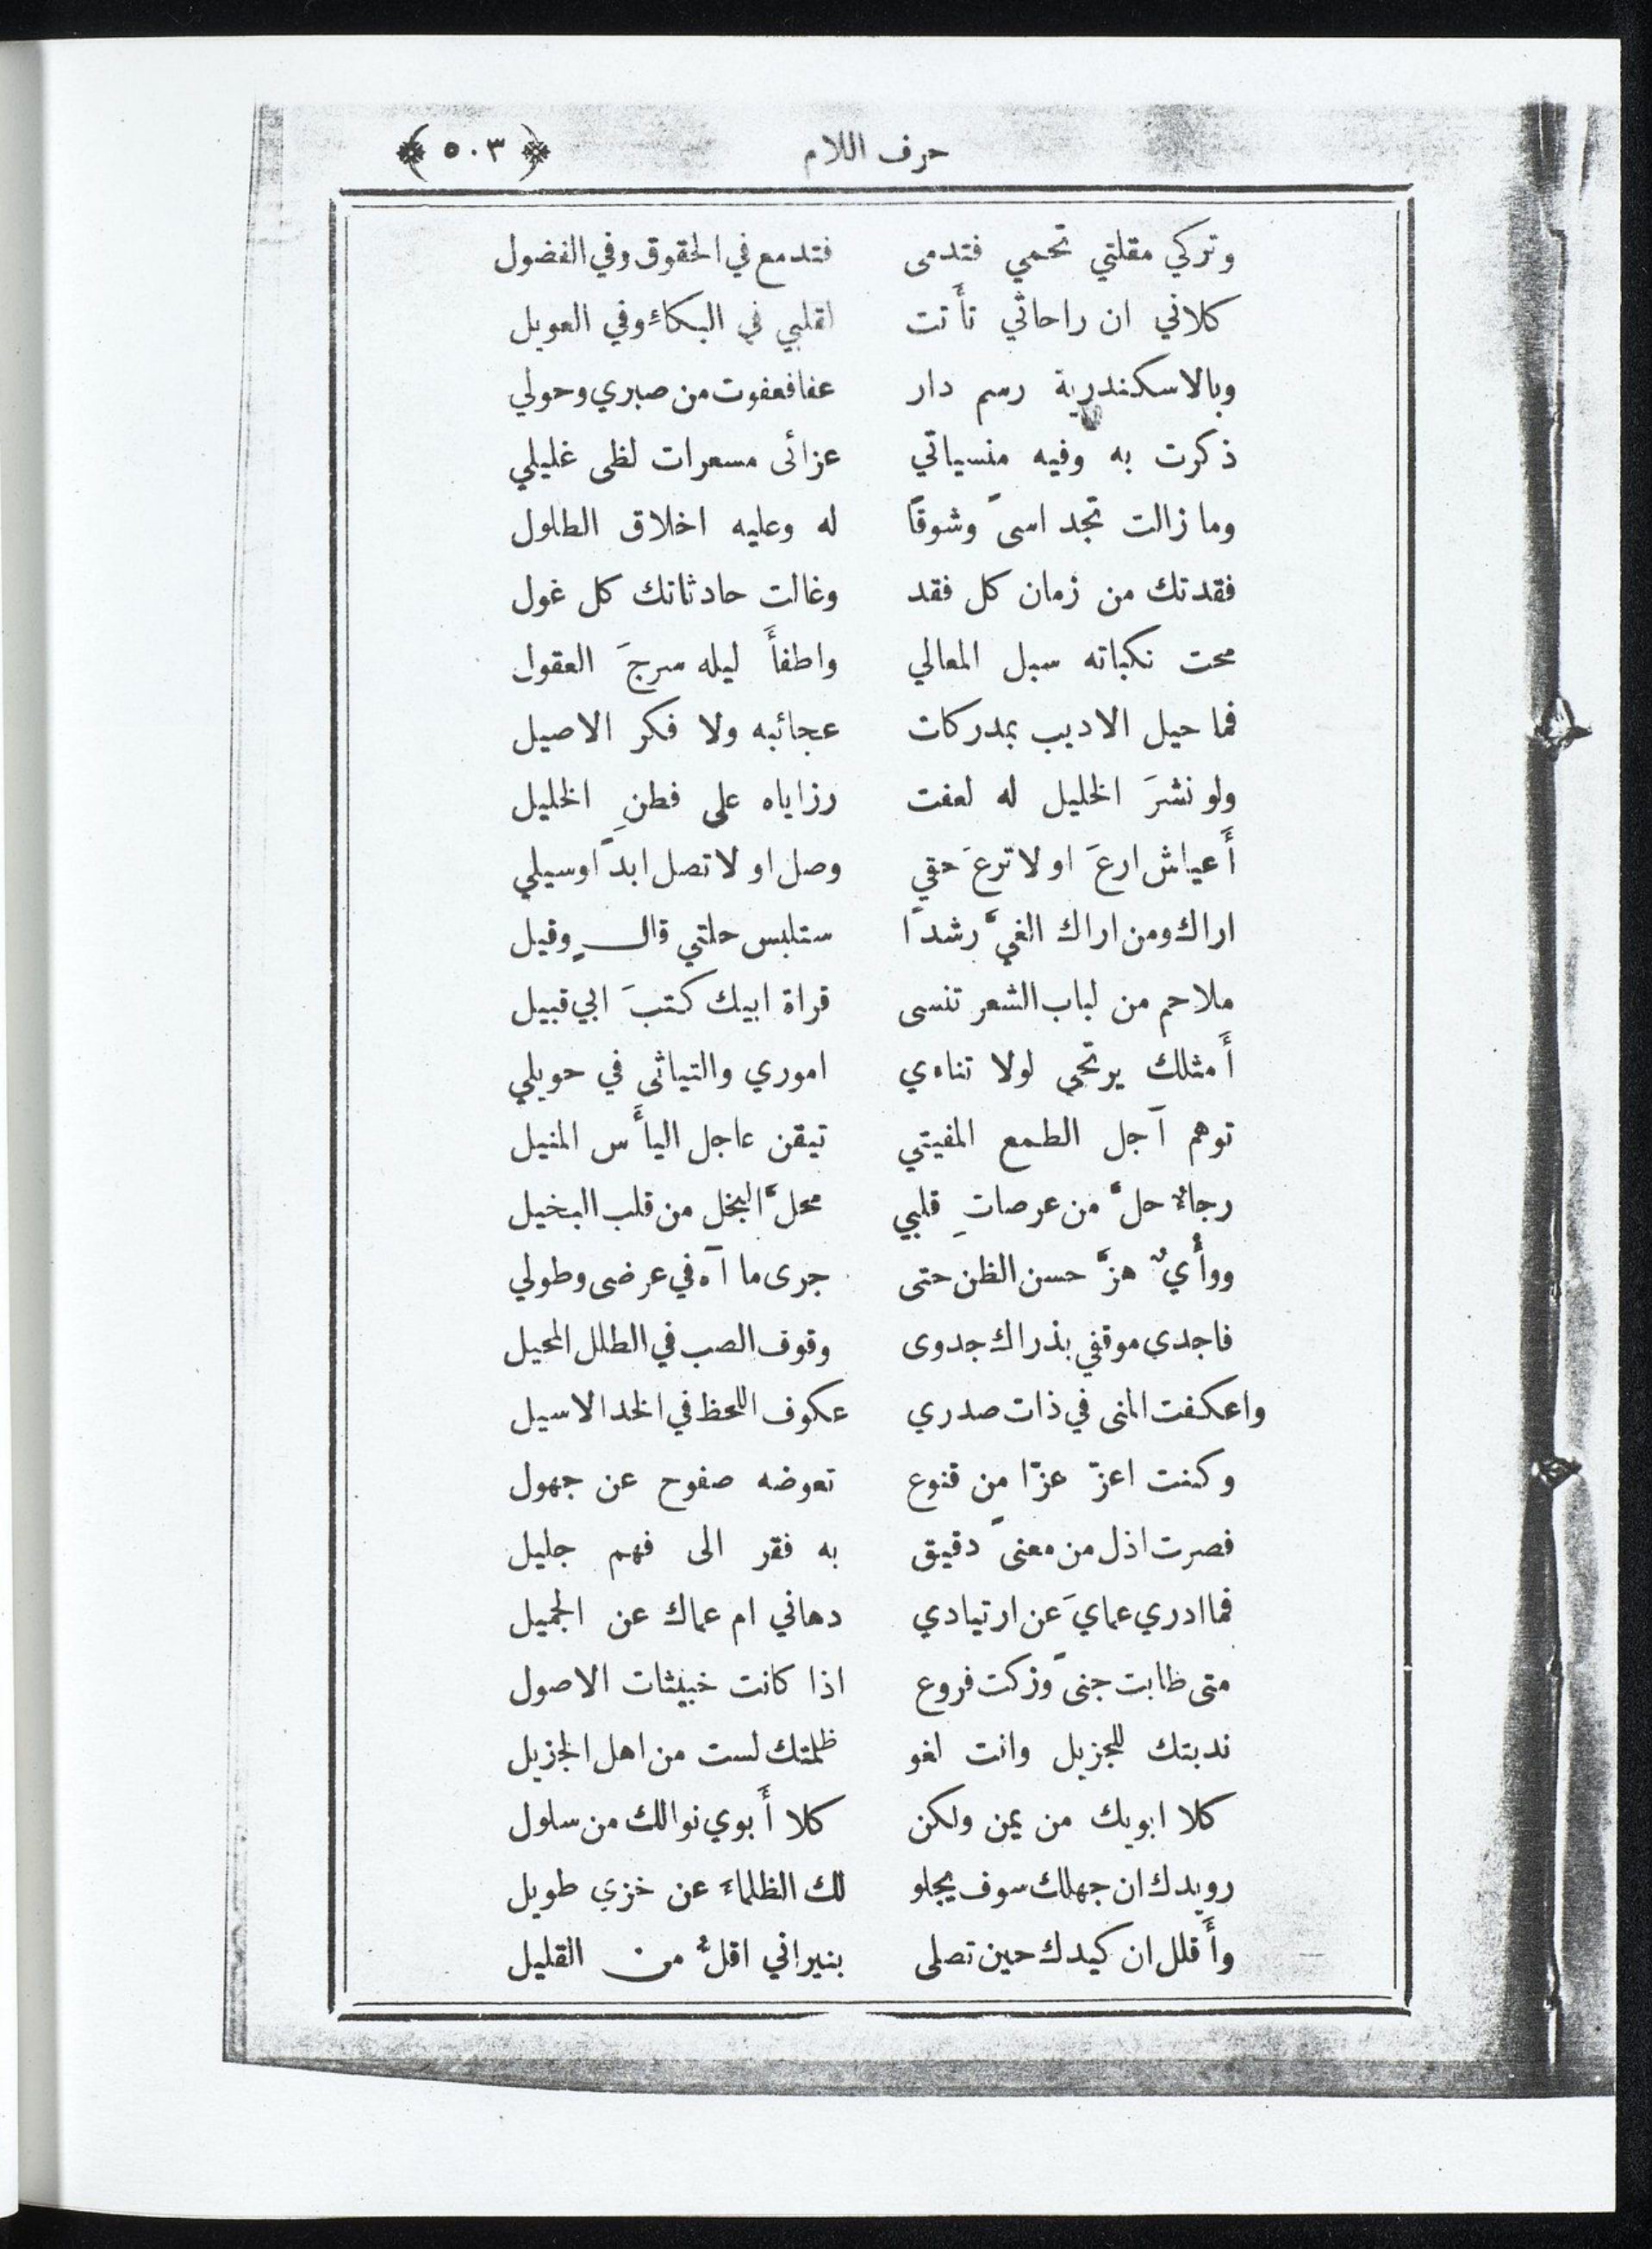 حرف اللام ﴿ ٥٠٣ ﴾
وتركي مقلتي تحمي فتدمى فتدمع في الحقوق وفي الفضول
كلاني ان راحاتي تأتت لقلبي في البكاء وفي العويل
وبالاسكندرية رسم دار عفا فعفوت من صبري وحولي
ذكرت به وفيه منسياتي عزائى مسعرات لظى غليلي
وما زالت تجد اسىً وشوقًا له وعليه اخلاق الطلول
فقدتك من زمان كل فقد وغالت حادثاتك كل غول
محت نكباته سبل المعالي واطفأَ ليله سرجَ العقول
فما حيل الاديب بمدركات عجائبه ولا فكر الاصيل
ولو نشرَ الخليل له لعفت رزاياه على فطنِ الخليل
أَعياش ارعَ او لا ترعَ حقي وصل او لا تصل ابدًا وسيلي
اراك ومن اراك الغيَّ رشدًا ستلبس حلتي قالٍ وقيل
ملاحم من لباب الشعر تنسى قراة ابيك كتبَ ابي قبيل
أَمثلك يرتجي لولا تناءي اموري والتياثى في حويلي
توهم آجل الطمع المفيتي تيقن عاجل اليأَس المنيل
رجاءٌ حلَّ من عرصاتِ قلبي محلَّ البخل من قلب البخيل
ووأْيٌ هزَّ حسن الظن حتى جرى ما آه في عرضى وطولي
فاجدى موقفي بذراك جدوى وقوف الصب في الطلل المحيل
واعكفت المنى في ذات صدري عكوف اللحظ في الخد الاسيل
وكنت اعزّ عزّا من قنوع تعوضه صفوح عن جهول
فصرت اذل من معنىً دقيق به فقر الى فهم جليل
فما ادري عمايَ عن ارتيادي دهاني ام عماك عن الجميل
متى طابت جنىً وزكت فروع اذا كانت خبيثات الاصول
ندبتك للجزيل وانت لغو ظلمتك لست من اهل الجزيل
كلا ابويك من يمن ولكن كلا أَبوي نوالك من سلول
رويدك ان جهلك سوف يجلو لك الظلماءَ عن خزي طويل
وأَقلل ان كيدك حين تصلى بنيراني اقلُّ من القليل